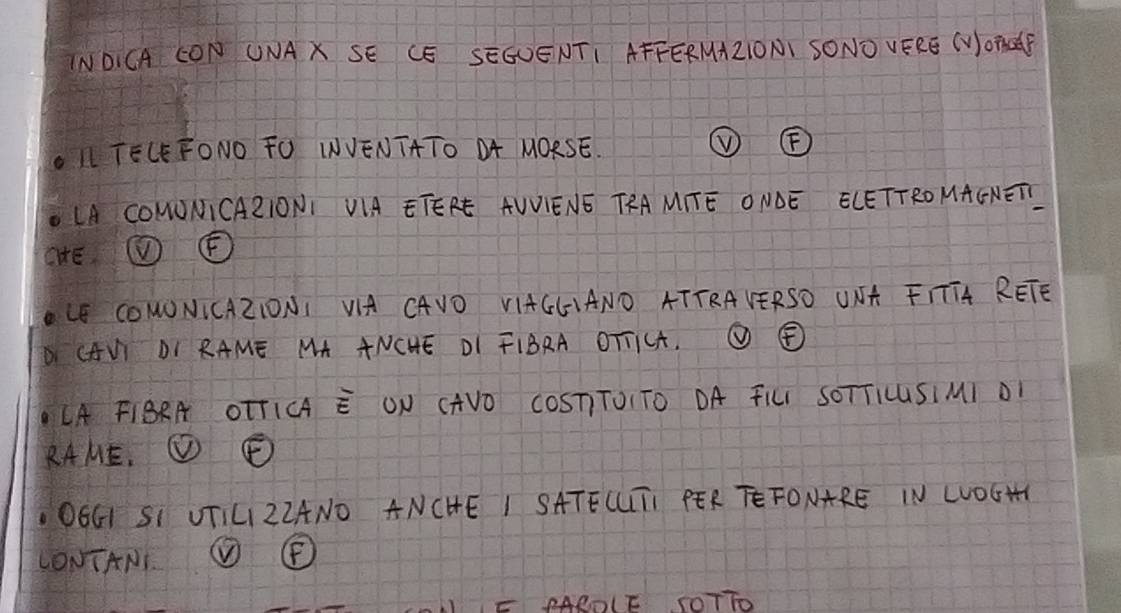 INDICA CON UNA X SE LE SEGUENTI AFFERMAZIONI SONO VERE (V) O
• IL TELEFONO FU INVENTATO DA MORSE. V F
• LA COMUNICAZIONI VIA ETERE AVVIENE TRAMITE ONDE ELETTROMAGNETI_
CHE. V F
• LE COMUNICAZIONI VIA CAVO VIAGGIANO ATTRAVERSO UNA FITTA RETE
DI CAVI DI RAME MA ANCHE DI FIBRA OTTICA. V F
• LA FIBRA OTTICA È UN CAVO COSTITUITO DA FILI SOTTILISSIMI DI
RAME. V F
• OGGI SI UTILIZZANO ANCHE I SATELLITI PER TEFONARE IN LUOGHI
LONTANI. V F
PAROLE SOTTO